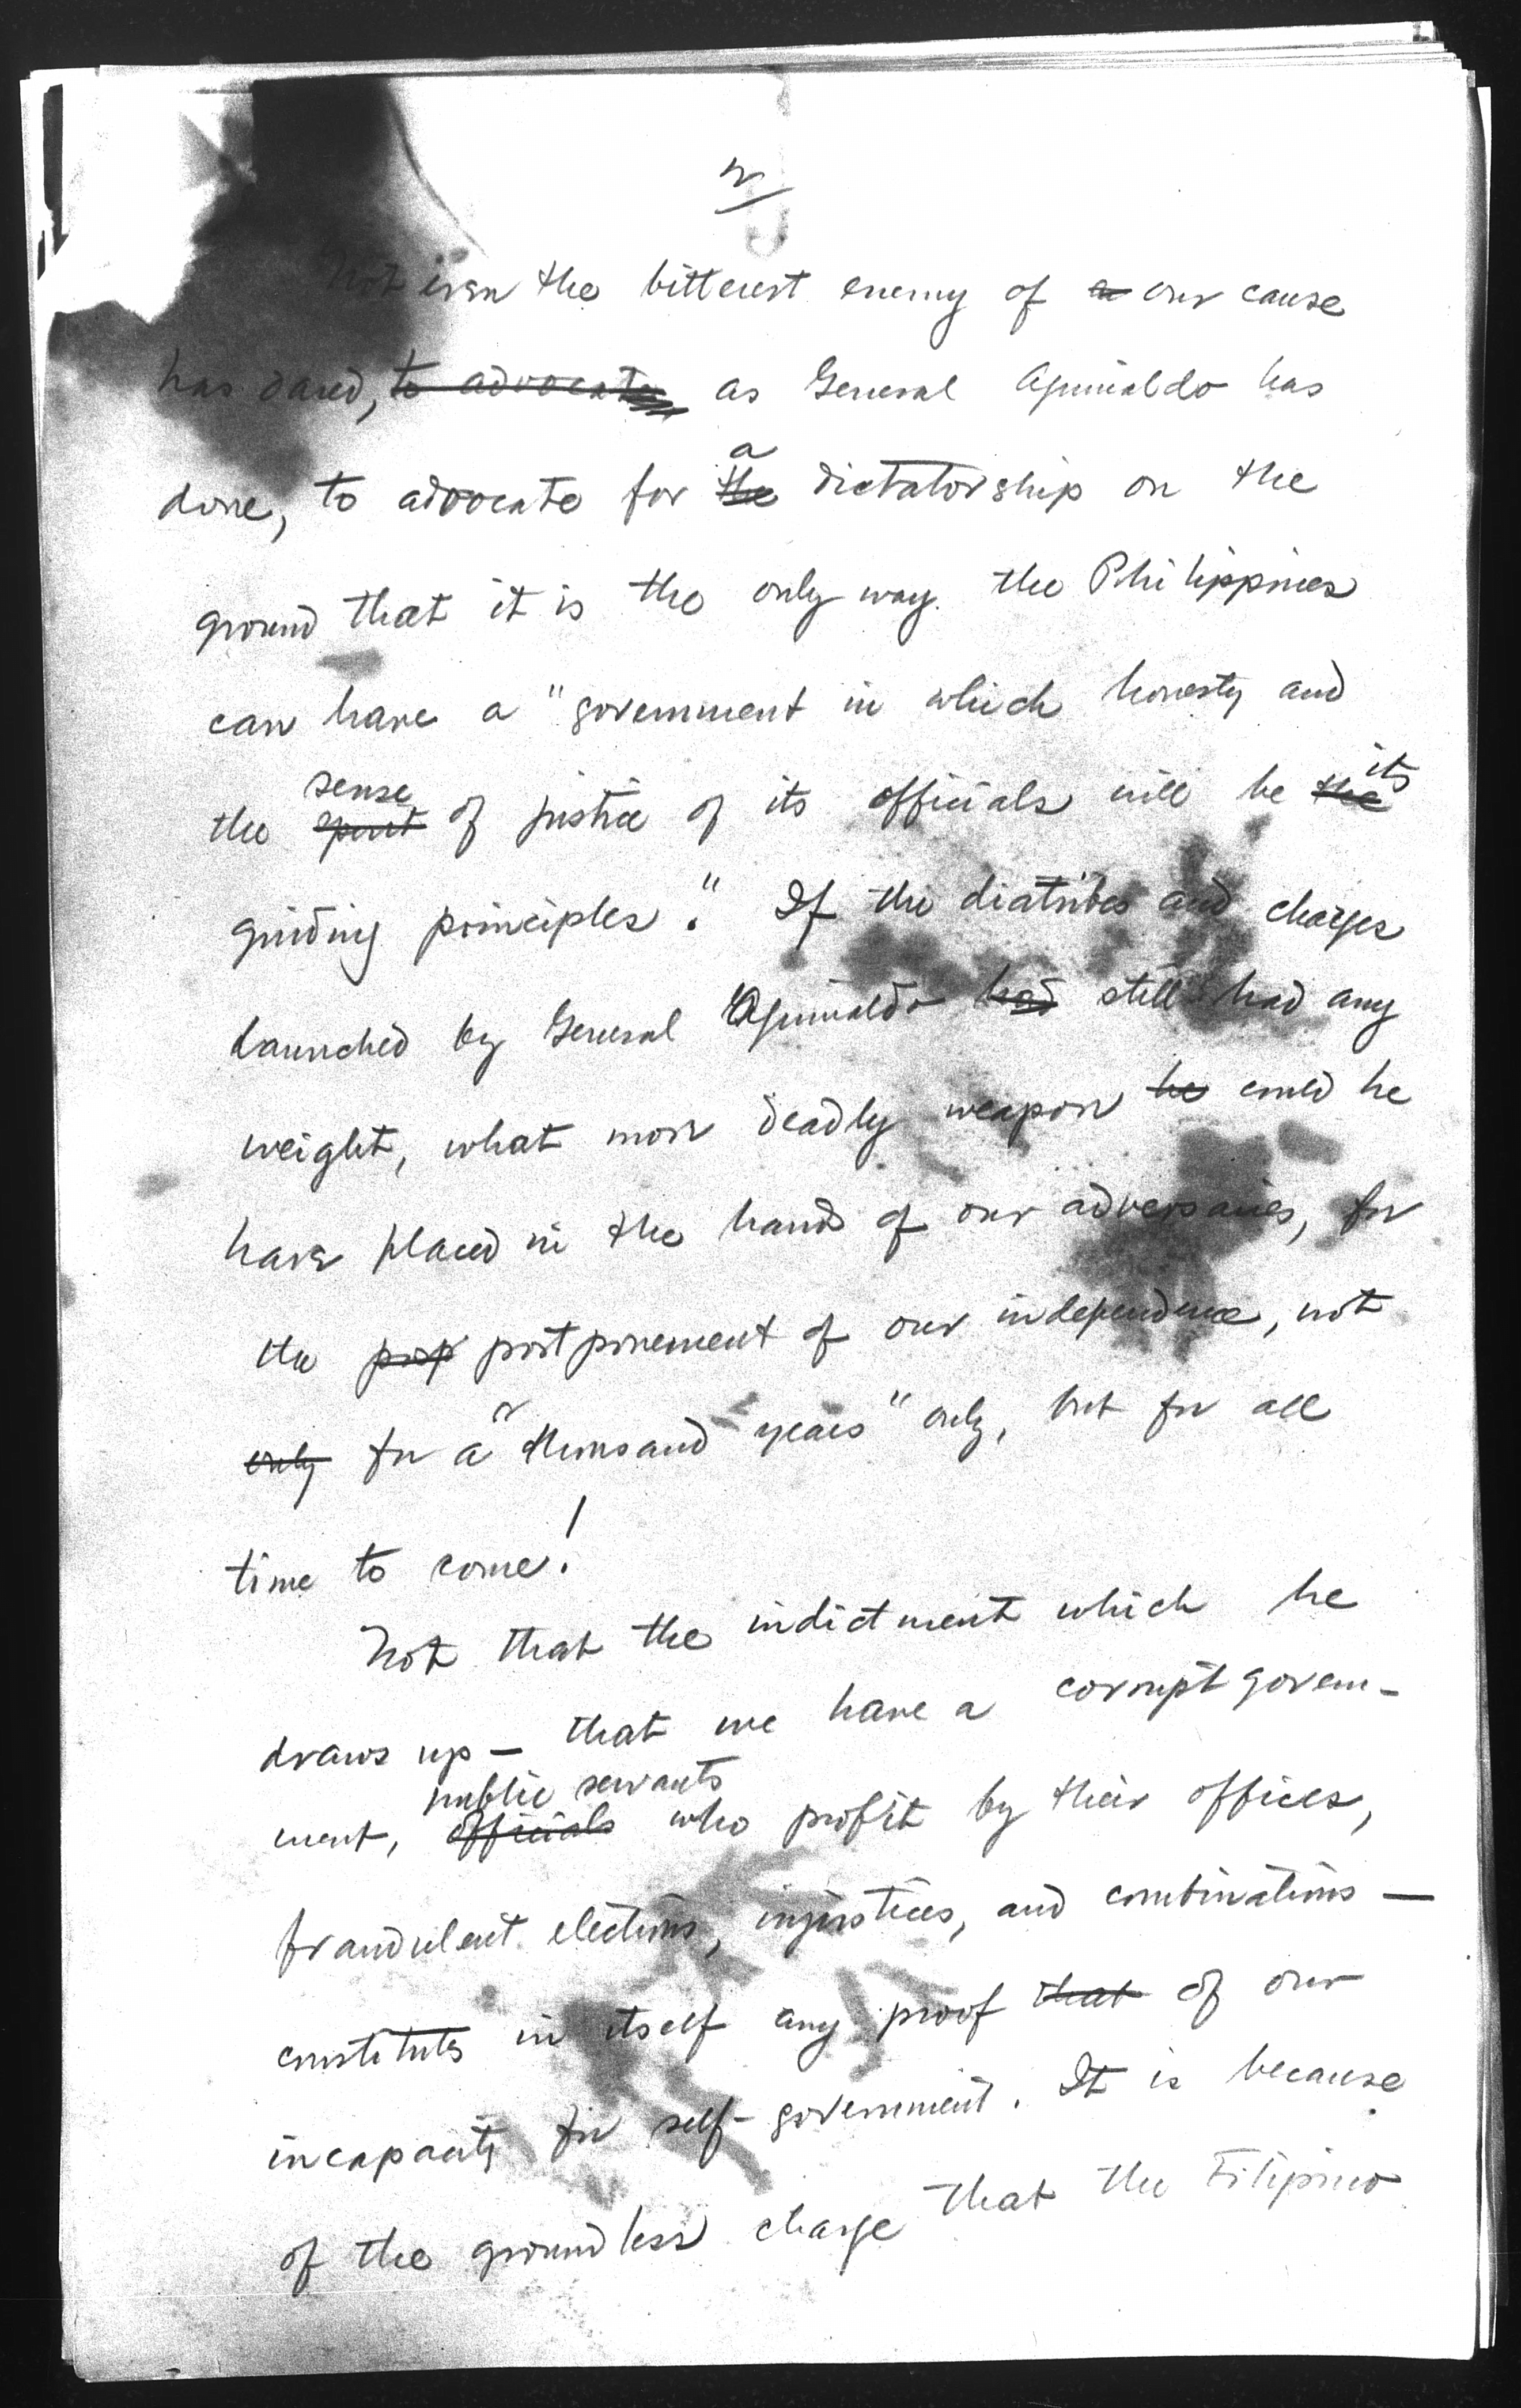 2
Not even the bitterest enemy of a our cause
has dared, to advocate as General Aguinaldo has
done, to advocate for the a dictatorship on the
ground that it is the only way the Philippines
can have a "government in which honesty and
the spirit sense of justice of its officials will be the its
guiding principles." If the diatribes and charges
launched by General Aguinaldo had still had any
weight, what more deadly weapon he could he
have placed in the hands of our adversaries, for
the pop postponement of our independence, not
only for a "thousand years" only, but for all
time to come!
Not that the indictment which he
draws up — that we have a corrupt govern-
ment, officials public servants who profit by their offices,
fraudulent elections, injustices, and combinations —
constitutes in itself any proof that of our
incapacity for self-government. It is because
of the groundless charge that the Filipino